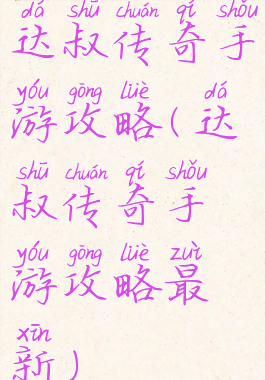 dá shū chuán qí shǒu
达叔传奇手
yóu gōng lüè dá
游攻略(达
shū chuán qí shǒu
叔传奇手
yóu gōng lüè zuì
游攻略最
xīn
新)